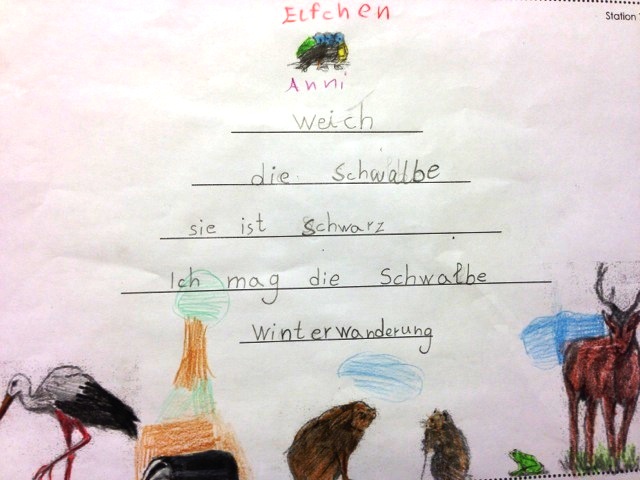 Elfchen
Station
Anni
Weich
die Schwalbe
sie ist schwarz
Ich mag die Schwalbe
Winterwanderung